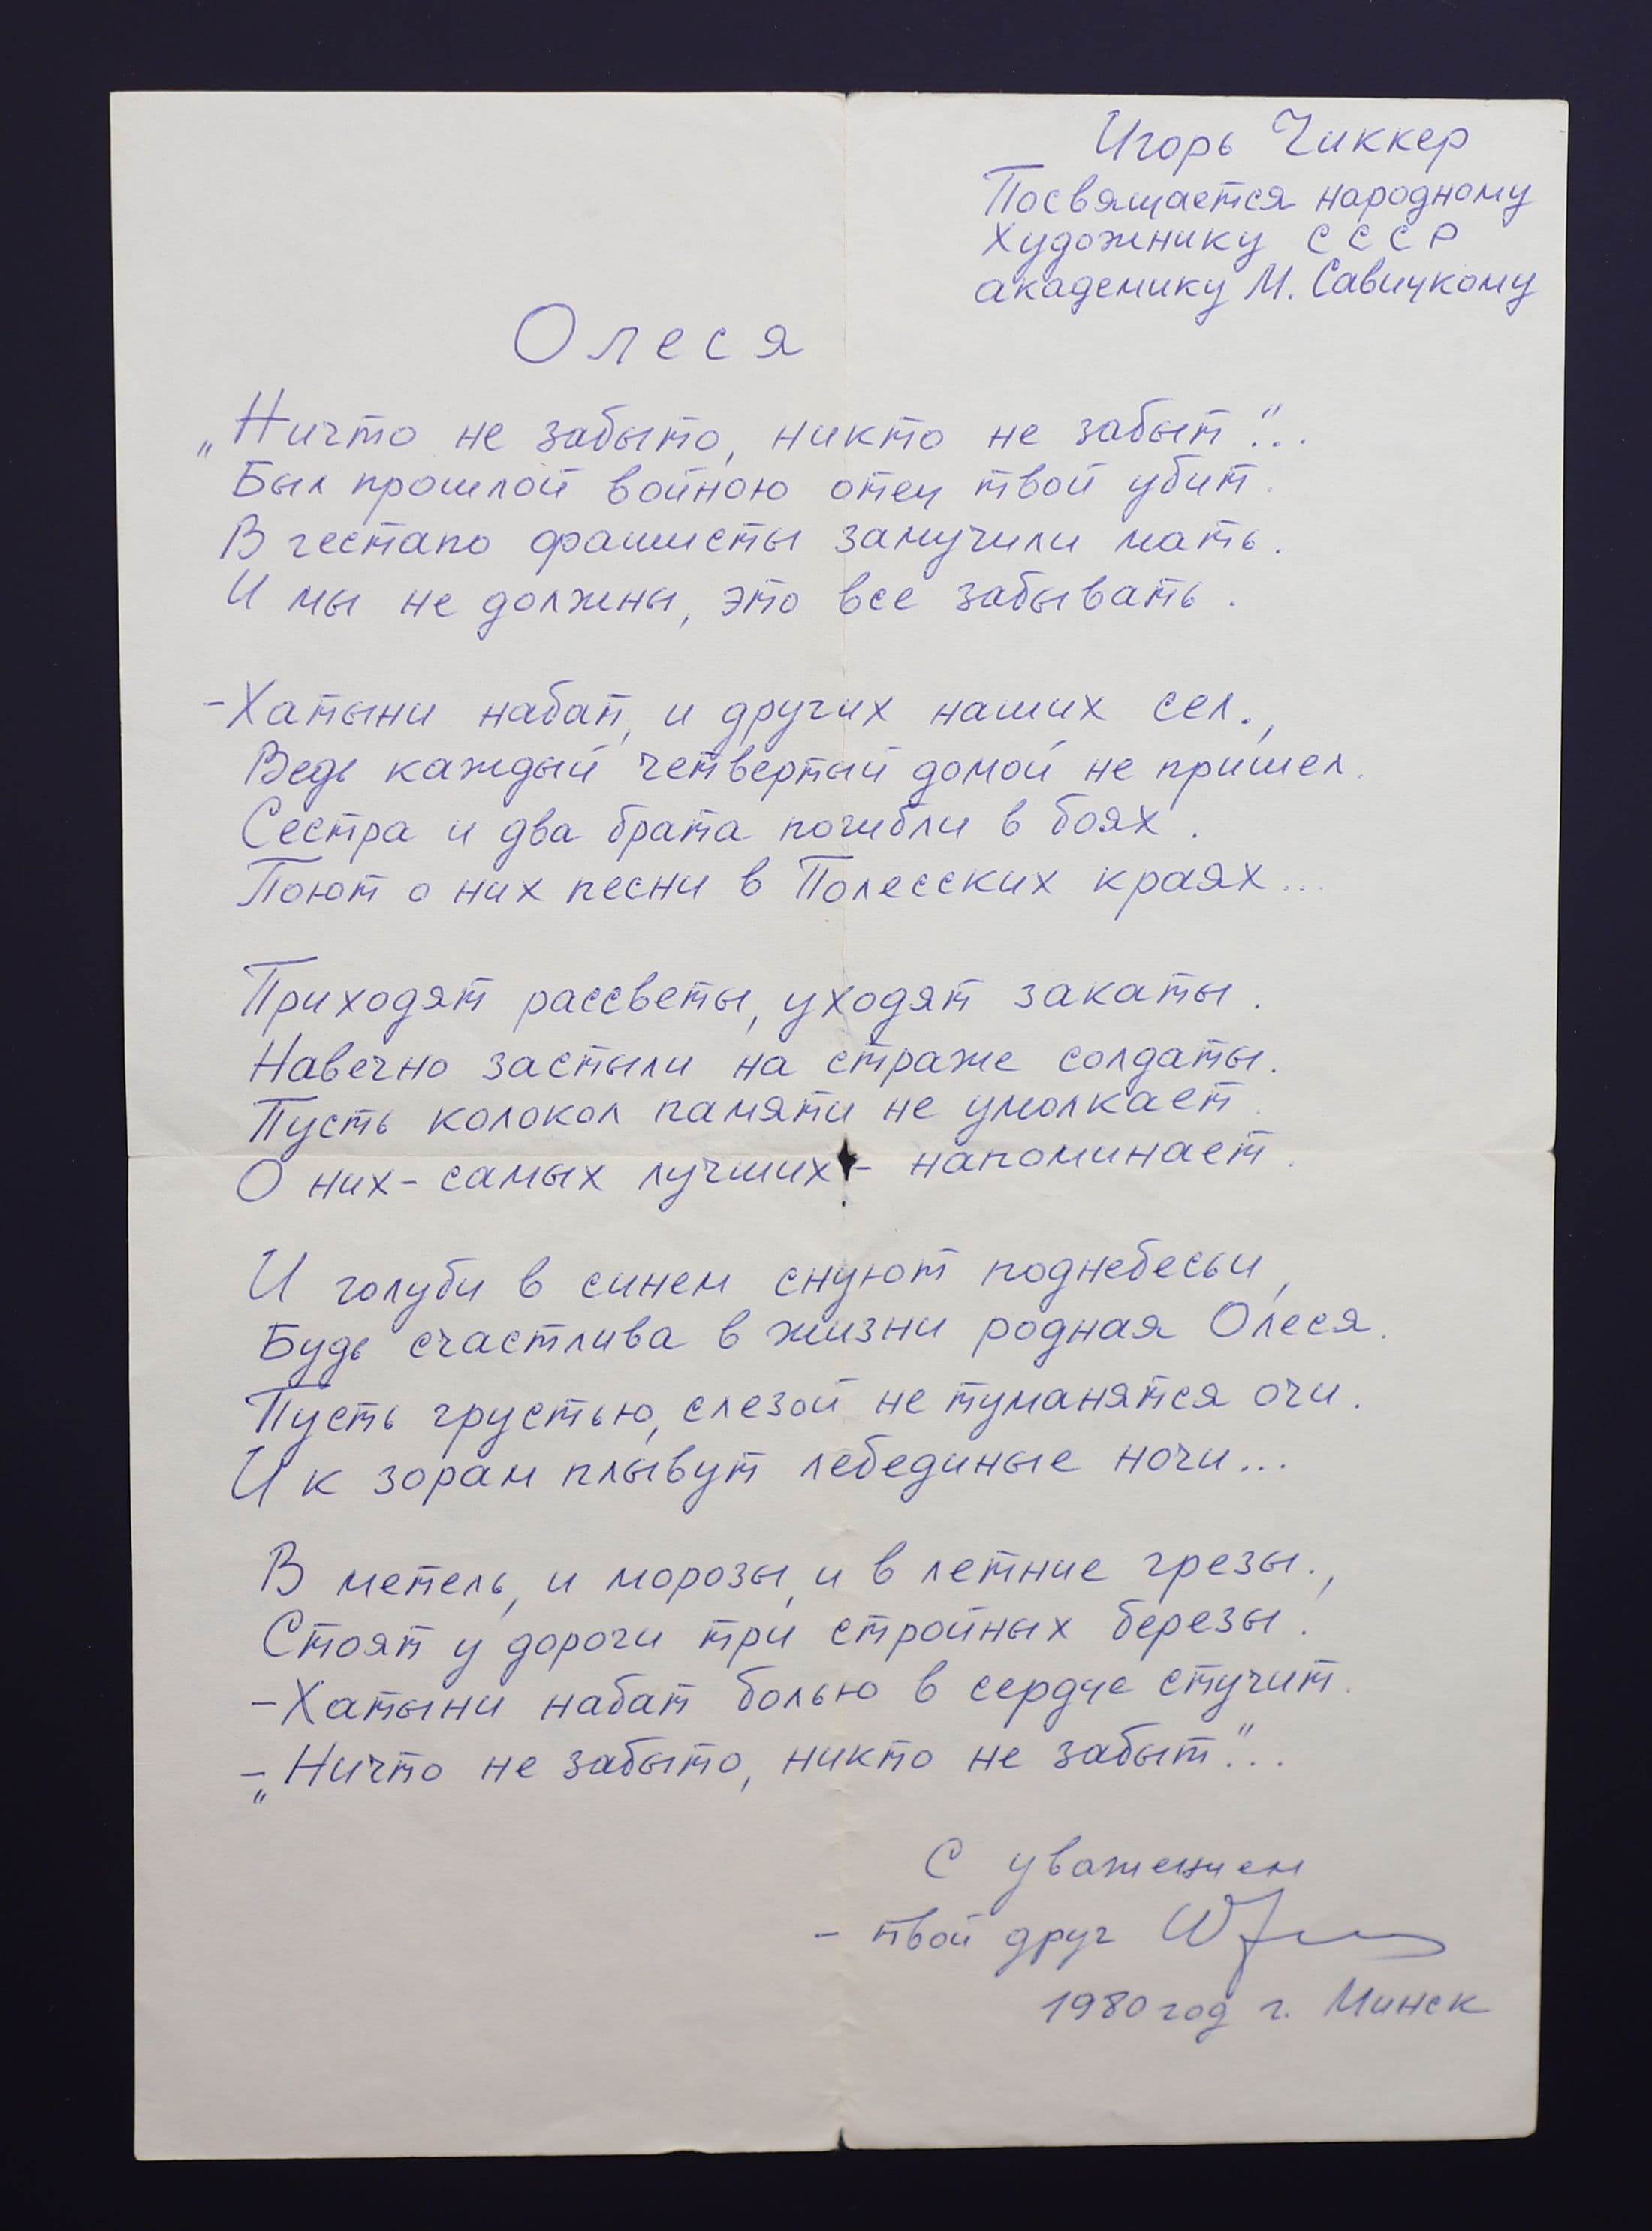 Игорь Чиккер
Посвящается народному
художнику СССР
академику М. Савицкому
Олеся
„Ничто не забыто, никто не забыт"...
Был прошлой войною отец твой убит.
В гестапо фашисты замучили мать.
И мы не должны, это все забывать.
-Хатыни набат, и других наших сел.,
Ведь каждый четвертый домой не пришел.
Сестра и два брата погибли в боях.
Поют о них песни в Полесских краях...
Приходят рассветы, уходят закаты.
Навечно застыли на страже солдаты.
Пусть колокол памяти не умолкает.
О них - самых лучших - напоминает.
И голуби в синем снуют поднебесьи,
Будь счастлива в жизни родная Олеся.
Пусть грустью, слезой не туманятся очи.
И к зорам плывут лебединые ночи...
В метель, и морозы, и в летние грезы.,
Стоят у дороги три стройных березы.
-Хатыни набат болью в сердце стучит.
-„Ничто не забыто, никто не забыт"...
С уважением
- твой друг
1980 год г. Минск